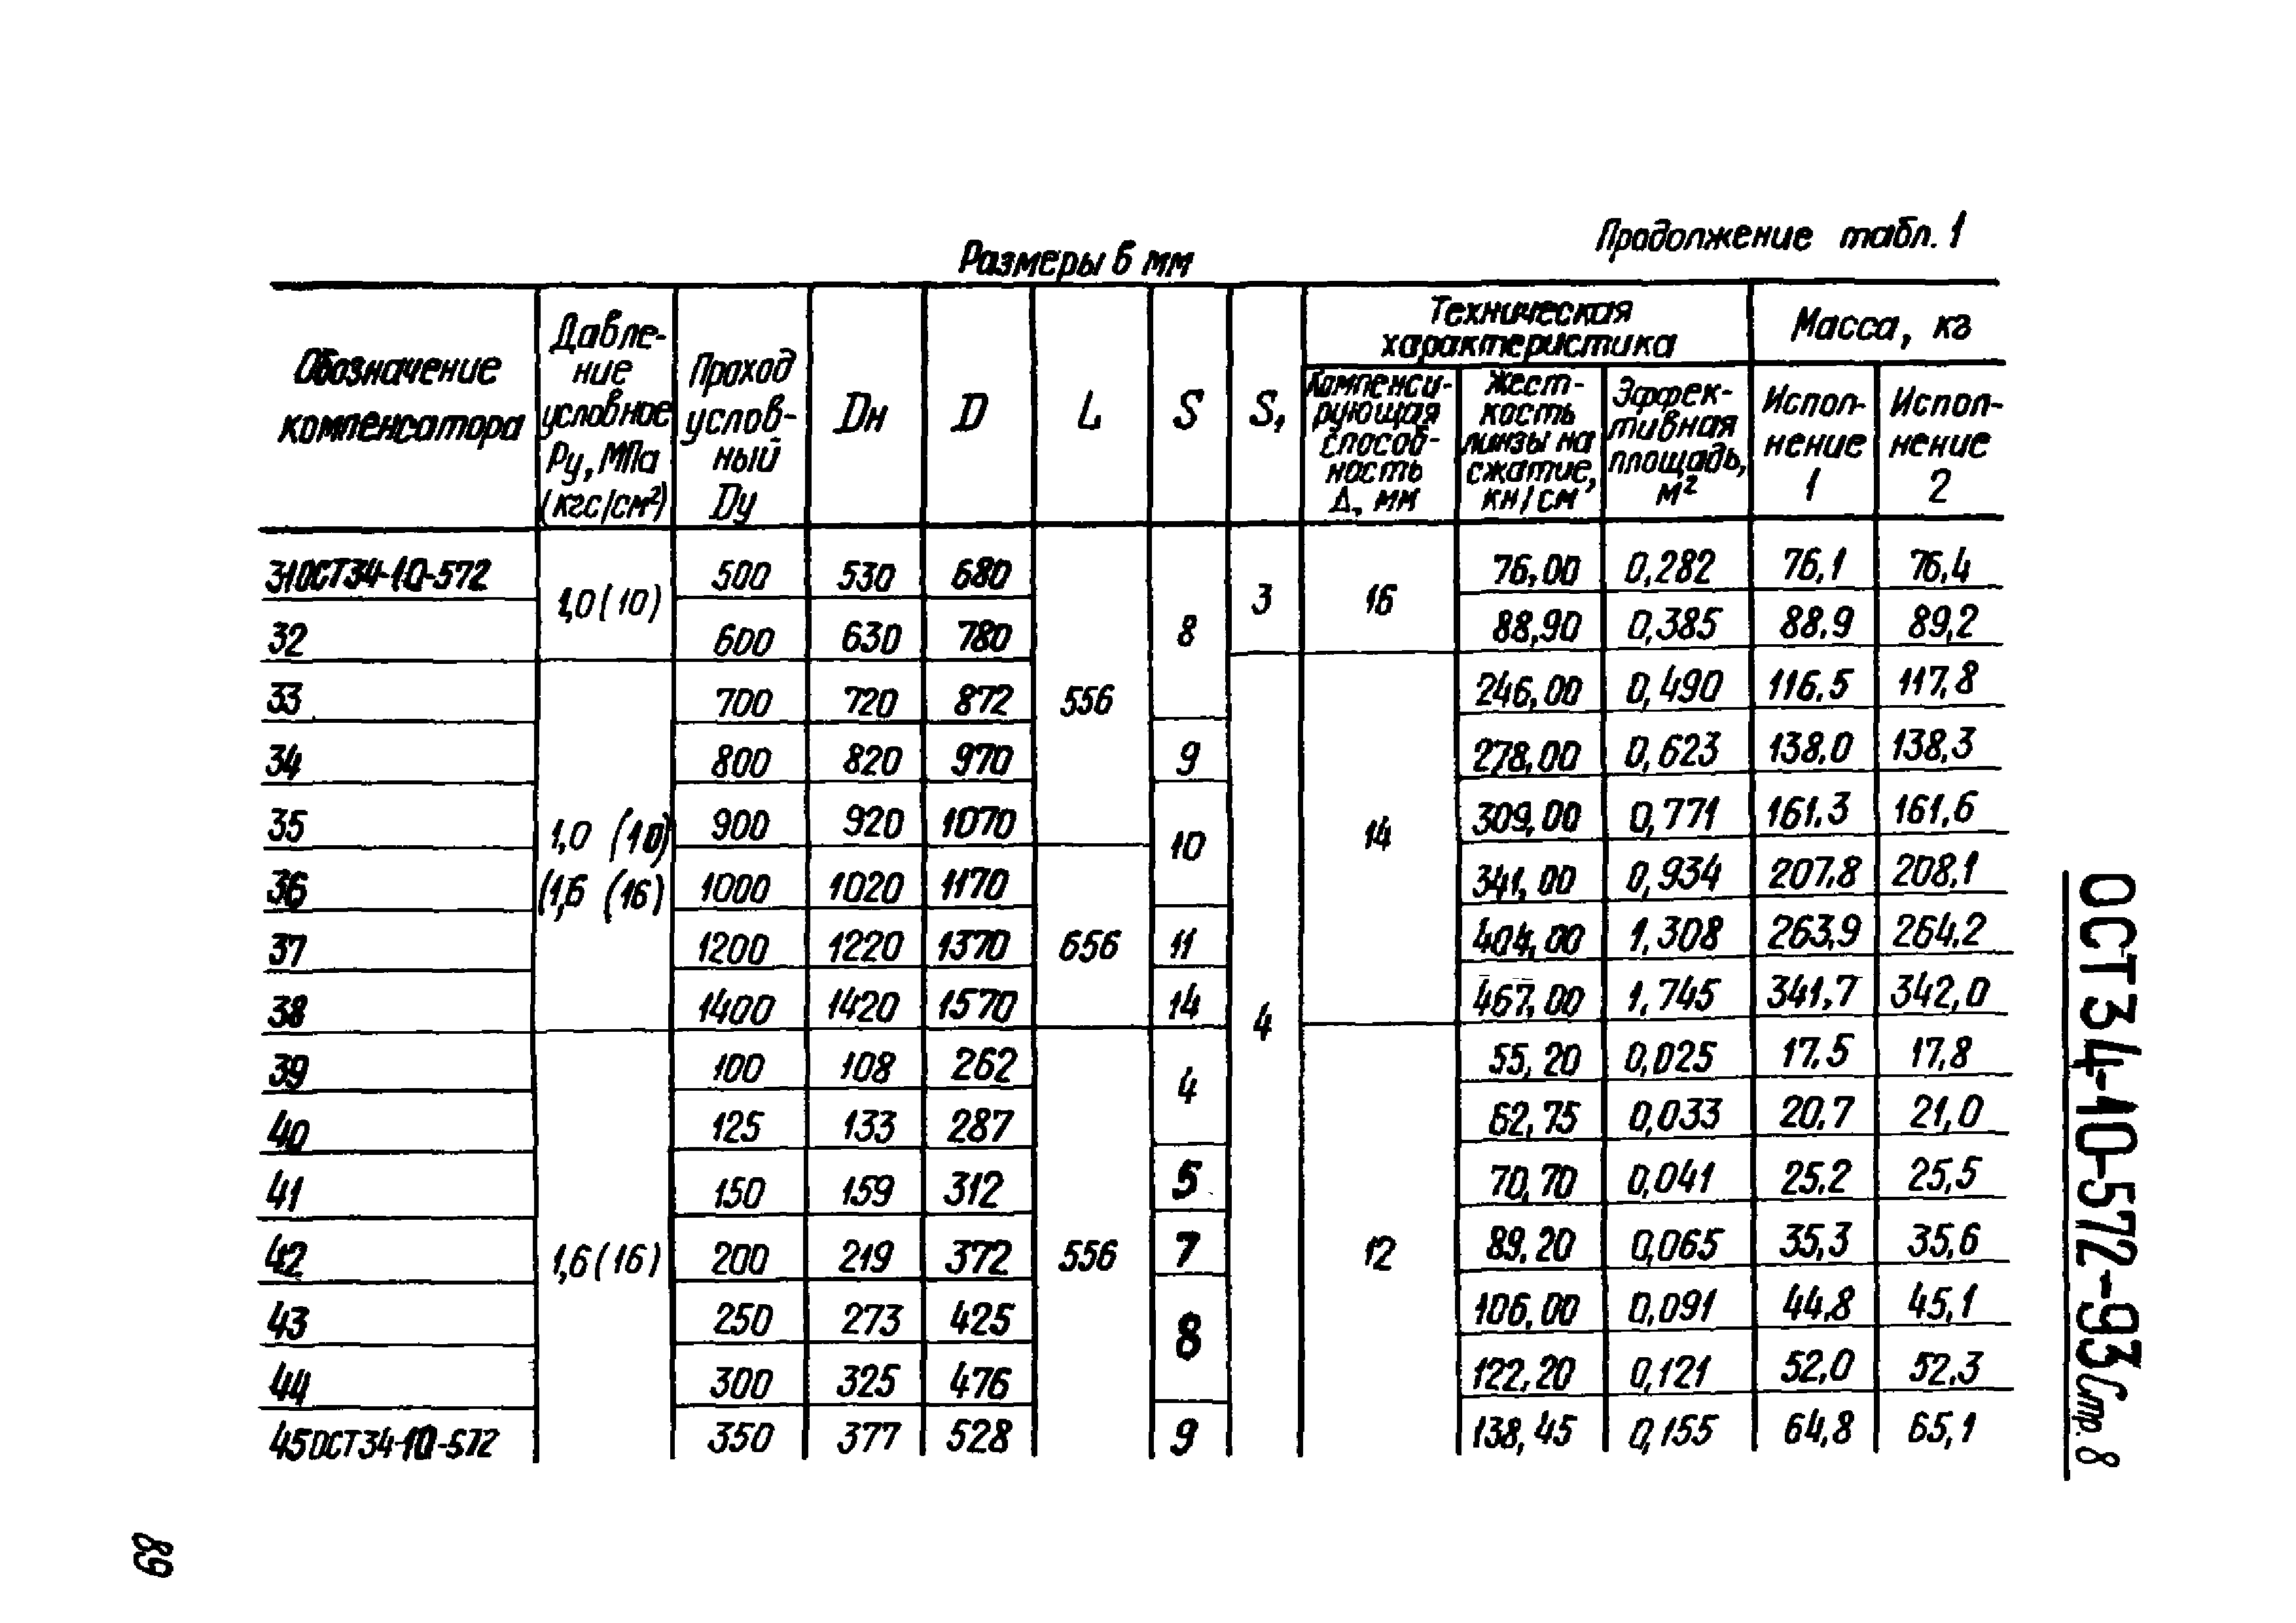 Продолжение табл. 1
Размеры в мм
Обозначение компенсатора | Давление условное Ру, МПа (кгс/см²) | Проход условный Dу | Dн | D | L | S | S₁ | Техническая характеристика | Масса, кг
Компенсирующая способность Δ, мм | Жесткость линзы на сжатие, кн/см | Эффективная площадь, м² | Исполнение 1 | Исполнение 2
31 ОСТ34-10-572 | 1,0 (10) | 500 | 530 | 680 | 556 | 8 | 3 | 16 | 76,00 | 0,282 | 76,1 | 76,4
32 | 600 | 630 | 780 | 88,90 | 0,385 | 88,9 | 89,2
33 | 1,0 (10) (1,6 (16) | 700 | 720 | 872 | 4 | 14 | 246,00 | 0,490 | 116,5 | 117,8
34 | 800 | 820 | 970 | 9 | 278,00 | 0,623 | 138,0 | 138,3
35 | 900 | 920 | 1070 | 10 | 309,00 | 0,771 | 161,3 | 161,6
36 | 1000 | 1020 | 1170 | 656 | 341,00 | 0,934 | 207,8 | 208,1
37 | 1200 | 1220 | 1370 | 11 | 404,00 | 1,308 | 263,9 | 264,2
38 | 1400 | 1420 | 1570 | 14 | 467,00 | 1,745 | 341,7 | 342,0
39 | 1,6 (16) | 100 | 108 | 262 | 556 | 4 | 12 | 55,20 | 0,025 | 17,5 | 17,8
40 | 125 | 133 | 287 | 62,75 | 0,033 | 20,7 | 21,0
41 | 150 | 159 | 312 | 5 | 70,70 | 0,041 | 25,2 | 25,5
42 | 200 | 219 | 372 | 7 | 89,20 | 0,065 | 35,3 | 35,6
43 | 250 | 273 | 425 | 8 | 106,00 | 0,091 | 44,8 | 45,1
44 | 300 | 325 | 476 | 122,20 | 0,121 | 52,0 | 52,3
45 ОСТ34-10-572 | 350 | 377 | 528 | 9 | 138,45 | 0,155 | 64,8 | 65,1
ОСТ 34-10-572-93 Стр. 8
89